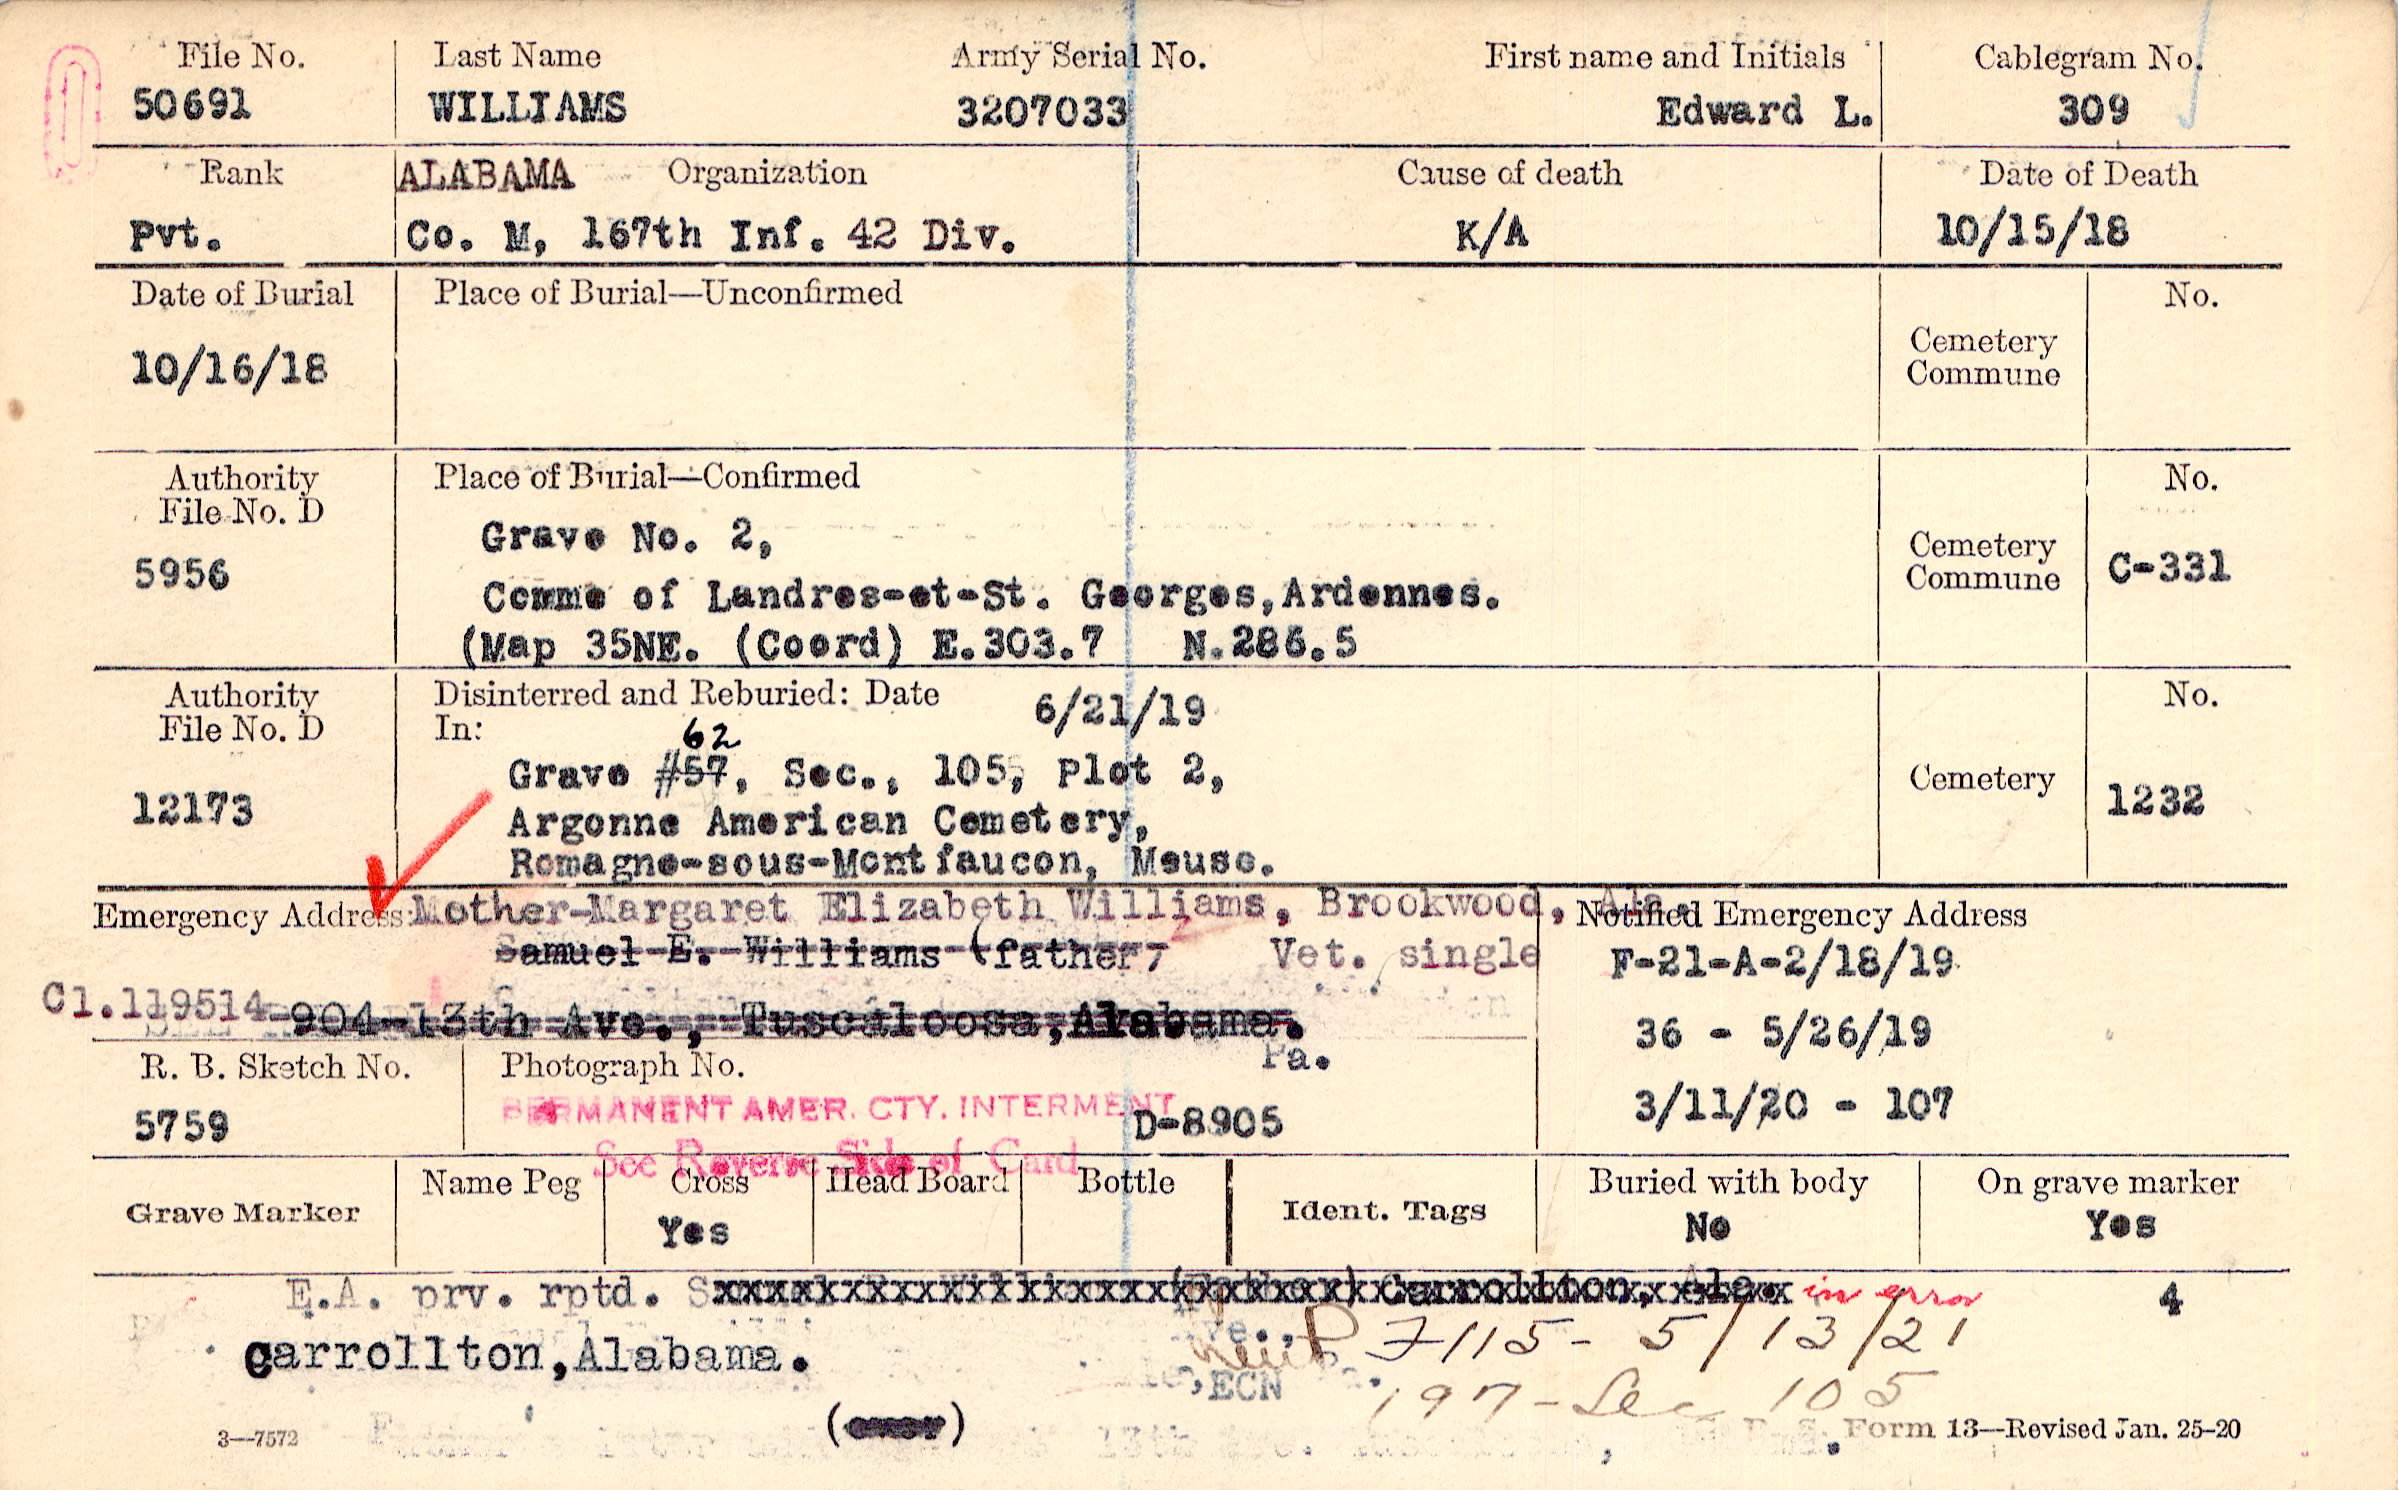 File No. Last Name Army Serial No. First name and Initials Cablegram No.
50691 WILLIAMS 3207033 Edward L. 309
Rank ALABAMA Organization Cause of death Date of Death
Pvt. Co. M, 167th Inf. 42 Div. K/A 10/15/18
Date of Burial Place of Burial—Unconfirmed No.
10/16/18 Cemetery
Commune
Authority Place of Burial—Confirmed No.
File No. D
Grave No. 2,
5956 Cemetery
Commune C-331
Comme of Landres-et-St. Georges,Ardennes.
(Map 35NE. (Coord) E.303.7 N.286.5
Authority Disinterred and Reburied: Date 6/21/19 No.
File No. D In:
62
Grave #57, Sec., 105, Plot 2, Cemetery
12173 1232
Argonne American Cemetery,
Romagne-sous-Montfaucon, Meuse.
Emergency Address: Mother-Margaret Elizabeth Williams, Brookwood, Ala. Notified Emergency Address
Samuel E. Williams (father) Vet. single F-21-A-2/18/19
Cl.119514 904-13th Ave., Tuscaloosa,Alabama. 36 - 5/26/19
R. B. Sketch No. Photograph No. Pa.
PERMANENT AMER. CTY. INTERMENT 3/11/20 - 107
5759 D-8905
See Reverse Side of Card
Grave Marker Name Peg Cross Head Board Bottle Ident. Tags Buried with body On grave marker
Yes No Yes
E.A. prv. rptd. Carrollton, Ala. in error 4
Carrollton,Alabama. 7115- 5/13/21
ECN 197-Sec 105
3—7572 Form 13—Revised Jan. 25-20